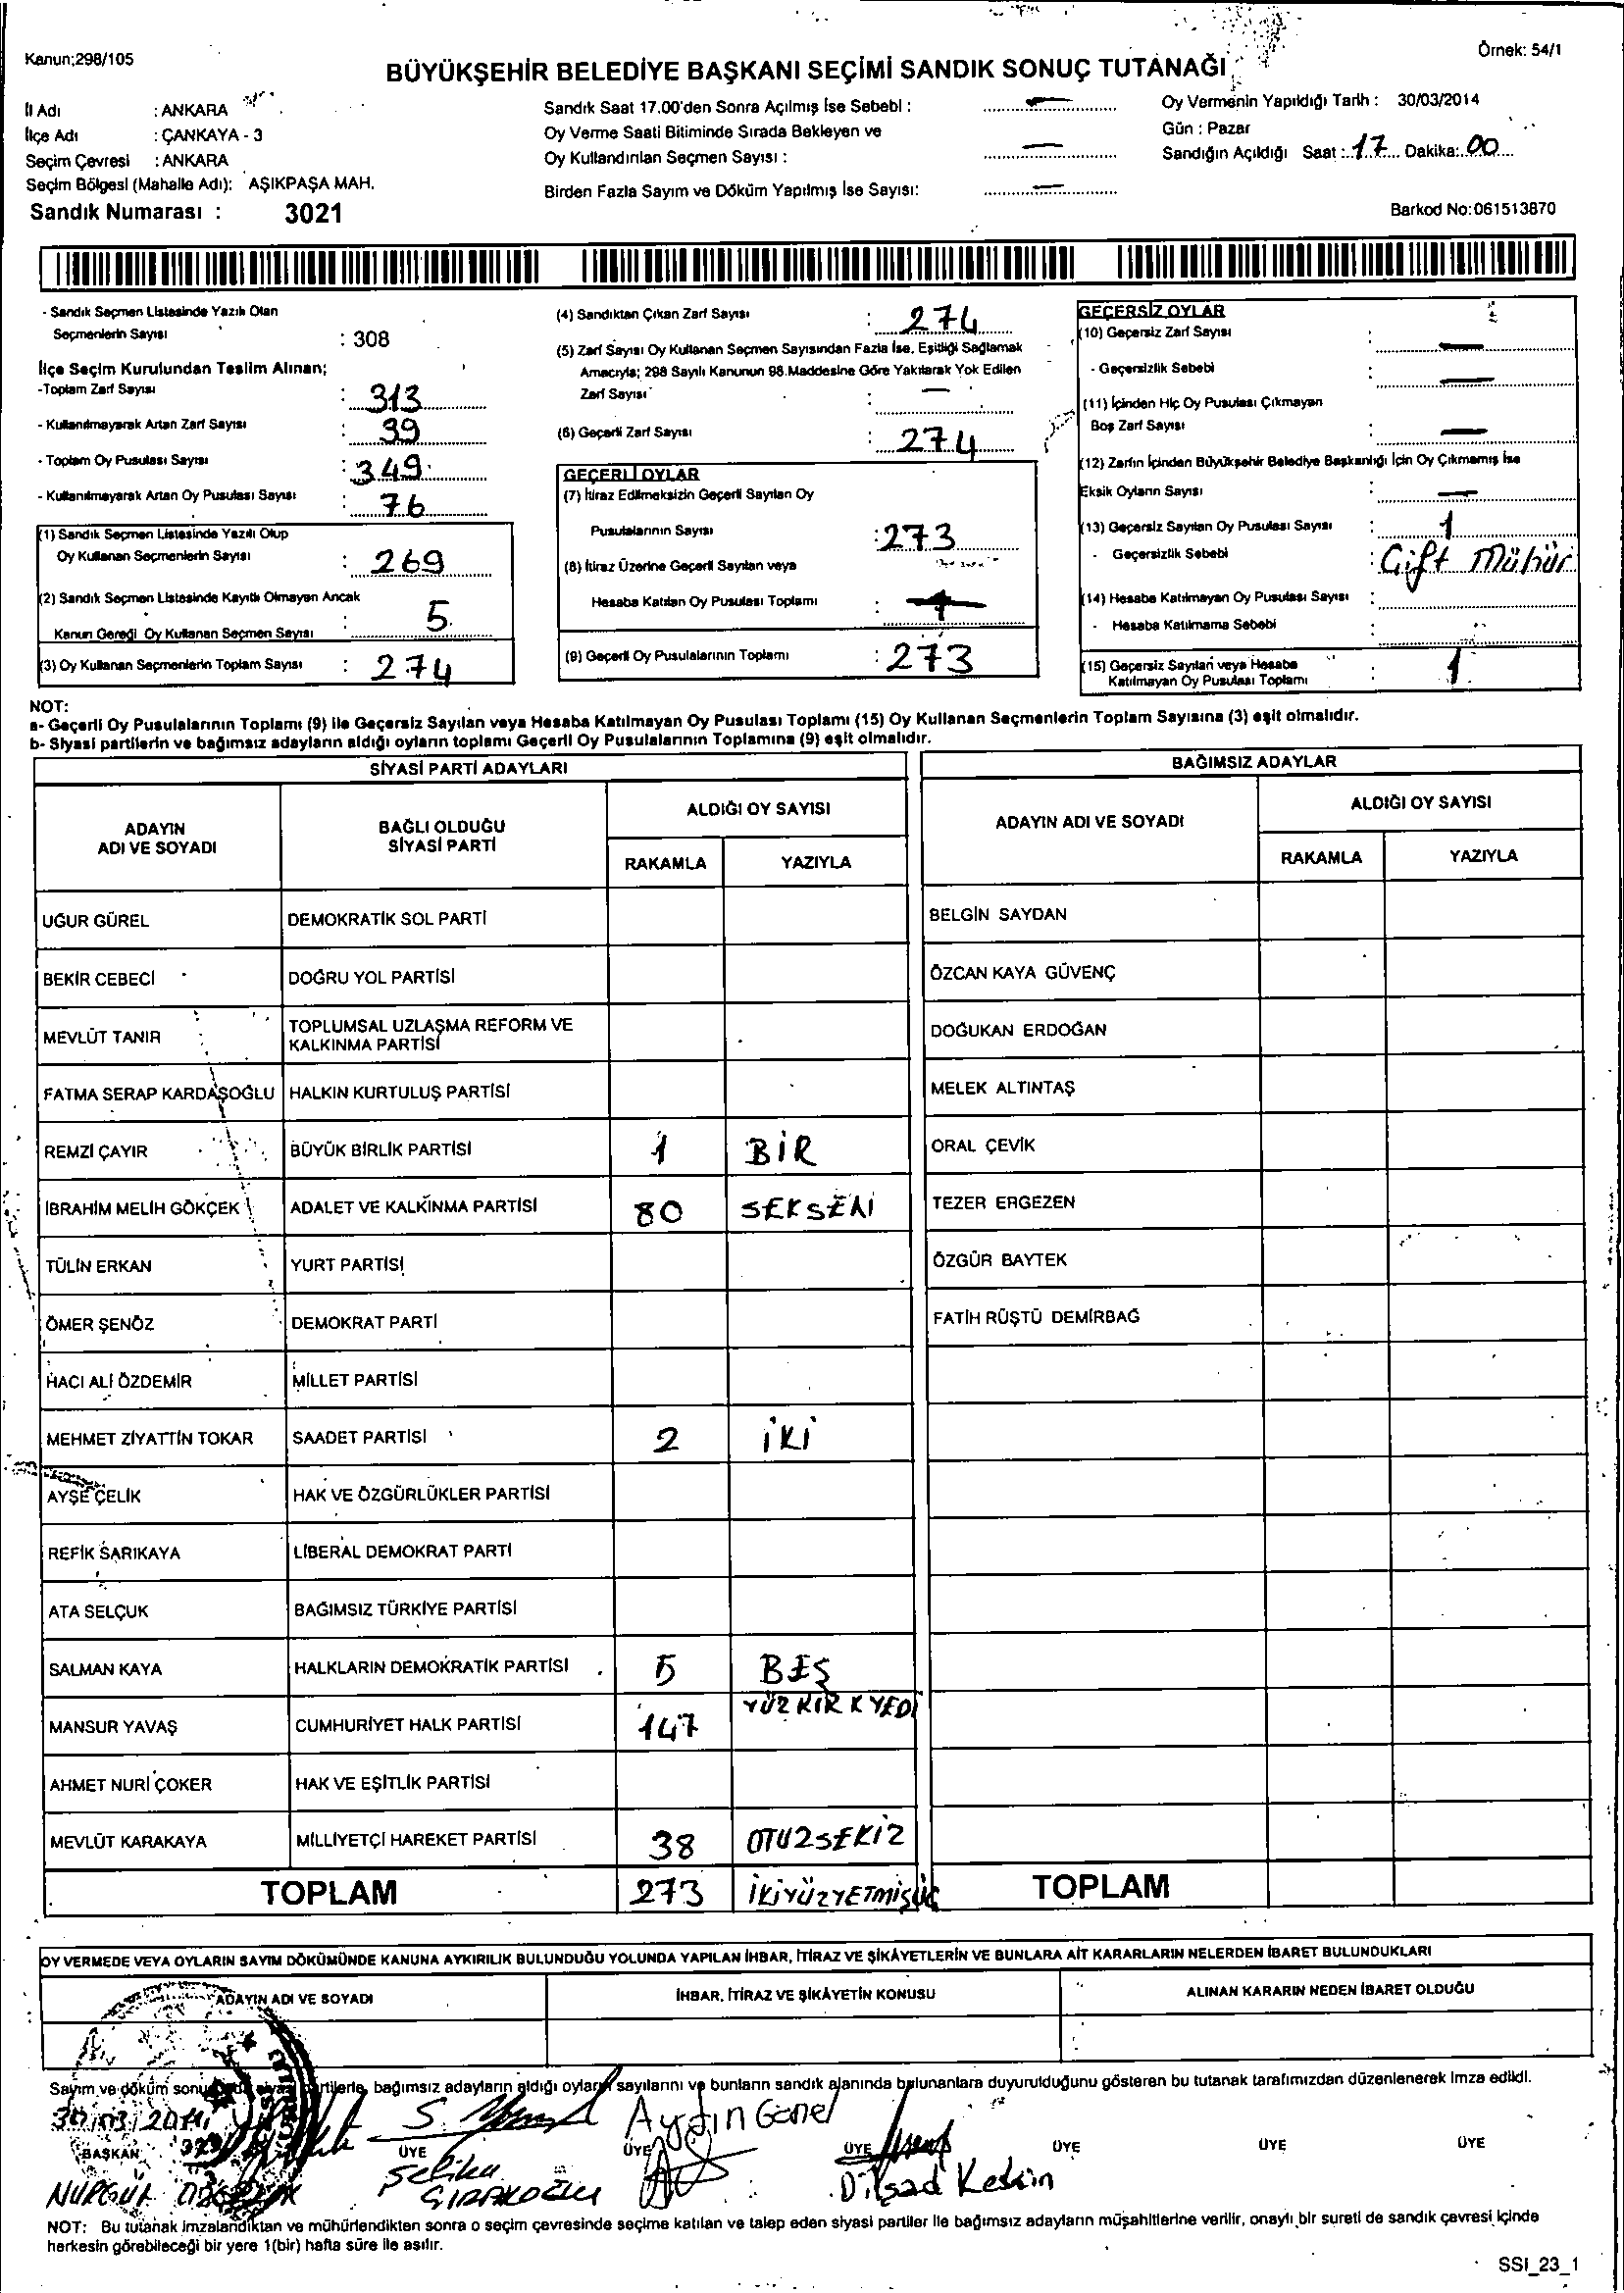 Kanun;298/105
Örnek: 54/1
BÜYÜKŞEHİR BELEDİYE BAŞKANI SEÇİMİ SANDIK SONUÇ TUTANAĞI
İl Adı : ANKARA
İlçe Adı : ÇANKAYA - 3
Seçim Çevresi : ANKARA
Seçim Bölgesi (Mahalle Adı): AŞIKPAŞA MAH.
Sandık Numarası : 3021
Sandık Saat 17.00'den Sonra Açılmış İse Sebebi : —
Oy Verme Saati Bitiminde Sırada Bekleyen ve
Oy Kullandırılan Seçmen Sayısı : —
Birden Fazla Sayım ve Döküm Yapılmış İse Sayısı: —
Oy Vermenin Yapıldığı Tarih : 30/03/2014
Gün : Pazar
Sandığın Açıldığı Saat : 17 Dakika: 00
Barkod No:061513870
- Sandık Seçmen Listesinde Yazılı Olan
Seçmenlerin Sayısı : 308
İlçe Seçim Kurulundan Teslim Alınan;
-Toplam Zarf Sayısı : 313
- Kullanılmayarak Artan Zarf Sayısı : 39
- Toplam Oy Pusulası Sayısı : 349
- Kullanılmayarak Artan Oy Pusulası Sayısı : 76
(1) Sandık Seçmen Listesinde Yazılı Olup
Oy Kullanan Seçmenlerin Sayısı : 269
(2) Sandık Seçmen Listesinde Kayıtlı Olmayan Ancak
Kanun Gereği Oy Kullanan Seçmen Sayısı : 5
(3) Oy Kullanan Seçmenlerin Toplam Sayısı : 274
(4) Sandıktan Çıkan Zarf Sayısı : 274
(5) Zarf Sayısı Oy Kullanan Seçmen Sayısından Fazla İse, Eşitliği Sağlamak
Amacıyla; 298 Sayılı Kanunun 98.Maddesine Göre Yakılarak Yok Edilen
Zarf Sayısı : —
(6) Geçerli Zarf Sayısı : 274
GEÇERLİ OYLAR
(7) İtiraz Edilmeksizin Geçerli Sayılan Oy
Pusulalarının Sayısı : 273
(8) İtiraz Üzerine Geçerli Sayılan veya
Hesaba Katılan Oy Pusulası Toplamı :
(9) Geçerli Oy Pusulalarının Toplamı : 273
GEÇERSİZ OYLAR
(10) Geçersiz Zarf Sayısı : —
- Geçersizlik Sebebi : —
(11) İçinden Hiç Oy Pusulası Çıkmayan
Boş Zarf Sayısı : —
(12) Zarfın İçinden Büyükşehir Belediye Başkanlığı İçin Oy Çıkmamış İse
Eksik Oyların Sayısı : —
(13) Geçersiz Sayılan Oy Pusulası Sayısı : 1
- Geçersizlik Sebebi : Çift Mühür
(14) Hesaba Katılmayan Oy Pusulası Sayısı :
- Hesaba Katılmama Sebebi :
(15) Geçersiz Sayılan veya Hesaba
Katılmayan Oy Pusulası Toplamı : 1
NOT:
a- Geçerli Oy Pusulalarının Toplamı (9) ile Geçersiz Sayılan veya Hesaba Katılmayan Oy Pusulası Toplamı (15) Oy Kullanan Seçmenlerin Toplam Sayısına (3) eşit olmalıdır.
b- Siyasi partilerin ve bağımsız adayların aldığı oyların toplamı Geçerli Oy Pusulalarının Toplamına (9) eşit olmalıdır.
SİYASİ PARTİ ADAYLARI
ADAYIN
ADI VE SOYADI
BAĞLI OLDUĞU
SİYASİ PARTİ
ALDIĞI OY SAYISI
RAKAMLA YAZIYLA
UĞUR GÜREL DEMOKRATİK SOL PARTİ
BEKİR CEBECİ DOĞRU YOL PARTİSİ
MEVLÜT TANIR TOPLUMSAL UZLAŞMA REFORM VE
KALKINMA PARTİSİ
FATMA SERAP KARDAŞOĞLU HALKIN KURTULUŞ PARTİSİ
REMZİ ÇAYIR BÜYÜK BİRLİK PARTİSİ 1 BİR
İBRAHİM MELİH GÖKÇEK ADALET VE KALKINMA PARTİSİ 80 SEKSEN
TÜLİN ERKAN YURT PARTİSİ
ÖMER ŞENÖZ DEMOKRAT PARTİ
HACI ALİ ÖZDEMİR MİLLET PARTİSİ
MEHMET ZİYATTİN TOKAR SAADET PARTİSİ 2 İKİ
AYŞE ÇELİK HAK VE ÖZGÜRLÜKLER PARTİSİ
REFİK SARIKAYA LİBERAL DEMOKRAT PARTİ
ATA SELÇUK BAĞIMSIZ TÜRKİYE PARTİSİ
SALMAN KAYA HALKLARIN DEMOKRATİK PARTİSİ 5 BEŞ
MANSUR YAVAŞ CUMHURİYET HALK PARTİSİ 147 YÜZ KIRK YEDİ
AHMET NURİ ÇOKER HAK VE EŞİTLİK PARTİSİ
MEVLÜT KARAKAYA MİLLİYETÇİ HAREKET PARTİSİ 38 OTUZSEKİZ
TOPLAM 273 İKİYÜZYETMİŞÜÇ
BAĞIMSIZ ADAYLAR
ADAYIN ADI VE SOYADI
ALDIĞI OY SAYISI
RAKAMLA YAZIYLA
BELGİN SAYDAN
ÖZCAN KAYA GÜVENÇ
DOĞUKAN ERDOĞAN
MELEK ALTINTAŞ
ORAL ÇEVİK
TEZER ERGEZEN
ÖZGÜR BAYTEK
FATİH RÜŞTÜ DEMİRBAĞ
TOPLAM
OY VERMEDE VEYA OYLARIN SAYIM DÖKÜMÜNDE KANUNA AYKIRILIK BULUNDUĞU YOLUNDA YAPILAN İHBAR, İTİRAZ VE ŞİKÂYETLERİN VE BUNLARA AİT KARARLARIN NELERDEN İBARET BULUNDUKLARI
ADAYIN ADI VE SOYADI
İHBAR, İTİRAZ VE ŞİKÂYETİN KONUSU
ALINAN KARARIN NEDEN İBARET OLDUĞU
Sayım ve döküm bağımsız adayların aldığı oyların sayılarını ve bunların sandık alanında bulunanlara duyurulduğunu gösteren bu tutanak tarafımızdan düzenlenerek imza edildi.
30/03/2014
Aydın Genel
BAŞKAN ÜYE ÜYE ÜYE ÜYE ÜYE ÜYE
NURGÜL
Dilşad Keskin
NOT: Bu tutanak imzalandıktan ve mühürlendikten sonra o seçim çevresinde seçime katılan ve talep eden siyasi partiler ile bağımsız adayların müşahitlerine verilir, onaylı bir sureti de sandık çevresi içinde
herkesin görebileceği bir yere 1(bir) hafta süre ile asılır.
SSI_23_1